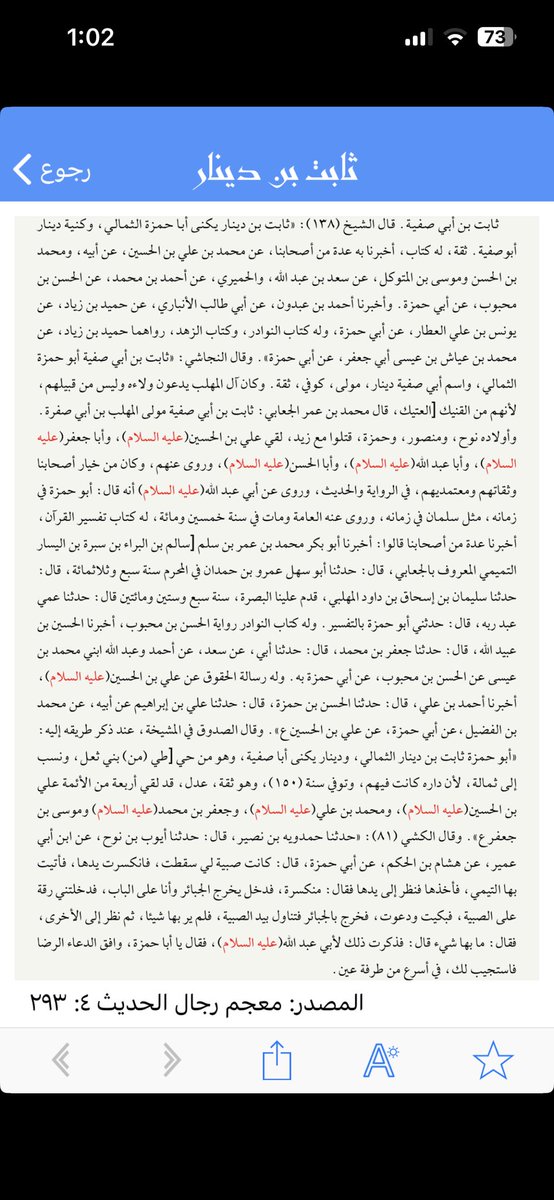 1:02
73
رجوع
ثابت بن دينار
ثابت بن أبي صفية. قال الشيخ (١٣٨): «ثابت بن دينار يكنى أبا حمزة الثمالي، وكنية دينار
أبوصفية. ثقة، له كتاب، أخبرنا به عدة من أصحابنا، عن محمد بن علي بن الحسين، عن أبيه، ومحمد
بن الحسن وموسى بن المتوكل، عن سعد بن عبد الله، والحميري، عن أحمد بن محمد، عن الحسن بن
محبوب، عن أبي حمزة. وأخبرنا أحمد بن عبدون، عن أبي طالب الأنباري، عن حميد بن زياد، عن
يونس بن علي العطار، عن أبي حمزة، وله كتاب النوادر، وكتاب الزهد، رواهما حميد بن زياد، عن
محمد بن عياش بن عيسى أبي جعفر، عن أبي حمزة». وقال النجاشي: «ثابت بن أبي صفية أبو حمزة
الثمالي، واسم أبي صفية دينار، مولى، كوفي، ثقة. وكان آل المهلب يدعون ولاءه وليس من قبيلهم،
لأنهم من القنيك [العتيك، قال محمد بن عمر الجعابي: ثابت بن أبي صفية مولى المهلب بن أبي صفرة.
وأولاده نوح، ومنصور، وحمزة، قتلوا مع زيد، لقي علي بن الحسين(عليه السلام)، وأبا جعفر(عليه
السلام)، وأبا عبد الله(عليه السلام)، وأبا الحسن(عليه السلام)، وروى عنهم، وكان من خيار أصحابنا
وثقاتهم ومعتمديهم، في الرواية والحديث، وروى عن أبي عبد الله(عليه السلام) أنه قال: أبو حمزة في
زمانه، مثل سلمان في زمانه، وروى عنه العامة ومات في سنة خمسين ومائة، له كتاب تفسير القرآن،
أخبرنا عدة من أصحابنا قالوا: أخبرنا أبو بكر محمد بن عمر بن سلم [سالم بن البراء بن سبرة بن اليسار
التميمي المعروف بالجعابي، قال: حدثنا أبو سهل عمرو بن حمدان في المحرم سنة سبع وثلاثمائة، قال:
حدثنا سليمان بن إسحاق بن داود المهلبي، قدم علينا البصرة، سنة سبع وستين ومائتين قال: حدثنا عمي
عبد ربه، قال: حدثني أبو حمزة بالتفسير. وله كتاب النوادر رواية الحسن بن محبوب، أخبرنا الحسين بن
عبيد الله، قال: حدثنا جعفر بن محمد، قال: حدثنا أبي، عن سعد، عن أحمد وعبد الله ابني محمد بن
عيسى عن الحسن بن محبوب، عن أبي حمزة به. وله رسالة الحقوق عن علي بن الحسين(عليه السلام)،
أخبرنا أحمد بن علي، قال: حدثنا الحسن بن حمزة، قال: حدثنا علي بن إبراهيم عن أبيه، عن محمد
بن الفضيل،عن أبي حمزة، عن علي بن الحسين ع». وقال الصدوق في المشيخة، عند ذكر طريقه إليه:
«أبو حمزة ثابت بن دينار الثمالي، ودينار يكنى أبا صفية، وهو من حي [طي (من) بني ثعل، ونسب
إلى ثمالة، لأن داره كانت فيهم، وتوفي سنة (١٥٠)، وهو ثقة، عدل، قد لقي أربعة من الأئمة علي
بن الحسين(عليه السلام)، ومحمد بن علي(عليه السلام)، وجعفر بن محمد(عليه السلام) وموسى بن
جعفرع». وقال الكشي (٨١): «حدثنا حمدويه بن نصير، قال: حدثنا أيوب بن نوح، عن ابن أبي
عمير، عن هشام بن الحكم، عن أبي حمزة، قال: كانت صبية لي سقطت، فانكسرت يدها، فأتيت
بها التيمي، فأخذها فنظر إلى يدها فقال: منكسرة، فدخل يخرج الجبائر وأنا على الباب، فدخلتني رقة
على الصبية، فبكيت ودعوت، فخرج بالجبائر فتناول بيد الصبية، فلم ير بها شيئا، ثم نظر إلى الأخرى،
فقال: ما بها شيء قال: فذكرت ذلك لأبي عبد الله(عليه السلام)، فقال يا أبا حمزة، وافق الدعاء الرضا
فاستجيب لك، في أسرع من طرفة عين.
المصدر: معجم رجال الحديث ٤: ٢٩٣